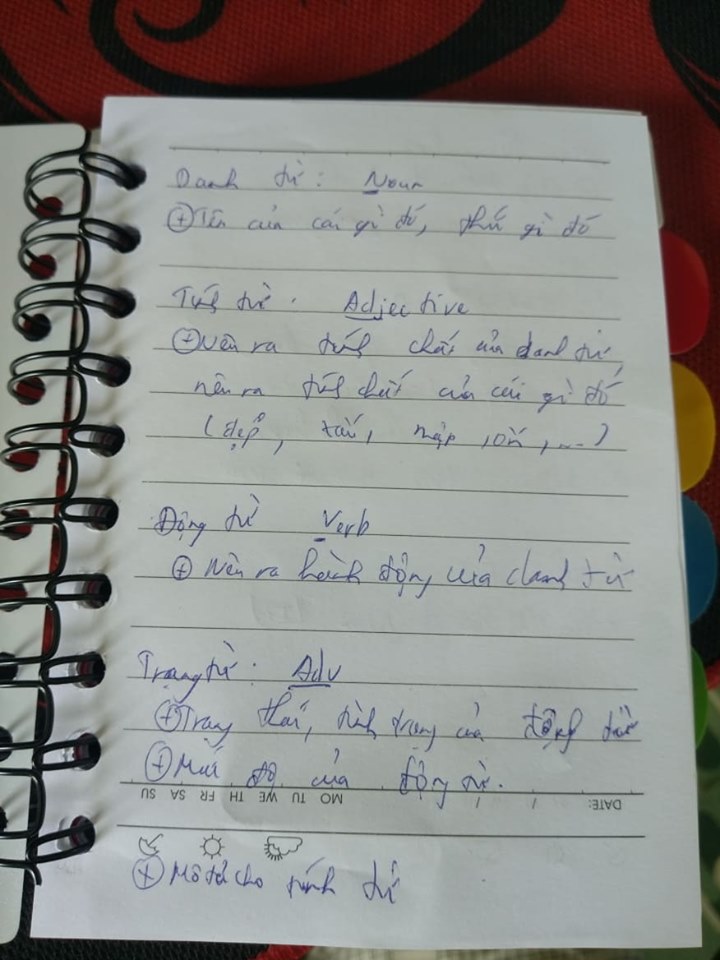 Danh từ : Noun
+ Tên của cái gì đó, thứ gì đó
Tính từ . Adjective
+ Nêu ra tính chất của danh từ,
nêu ra tính chất của cái gì đó
(đẹp, xấu, mập, ốm, ...)
Động từ Verb
+ Nêu ra hành động của danh từ
Trạng từ : Adv
+ Trạng thái, tình trạng của động từ
+ Mức độ của động từ.
DATE: / / MO TU WE TH FR SA SU
+ Mô tả cho tính từ